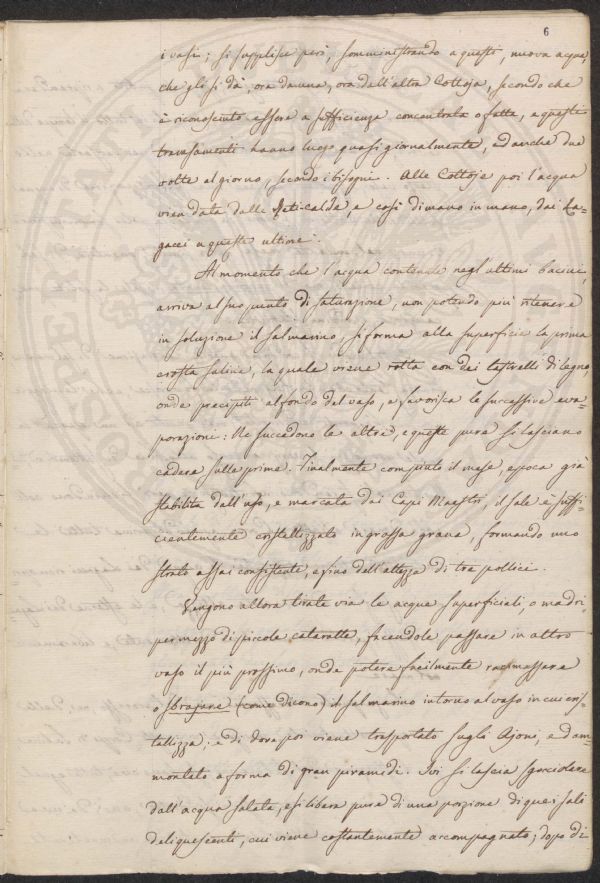 6
i vasi; si supplisce però, somministrando a questi, nuova acqua,
che gli si dà, ora da una, ora dall'altra Cottoja, secondo che
è riconosciuto essere a sufficienza concentrata o fatta, e questi
travasamenti hanno luogo quasi giornalmente, ed anche due
volte al giorno, secondo i bisogni. Alle Cottoje poi l'acqua
vien data dalle Reti-calde, e così di mano in mano, dai La=
gacci a queste ultime.
Al momento che l'acqua contenuta negl'ultimi bacini,
arriva al suo punto di saturazione, non potendo più ritenere
in soluzione il sal marino, si forma alla superficie la prima
crosta salina, la quale viene rotta con dei tastrelli di legno,
onde precipiti al fondo del vaso, e favorisca le successive eva=
porazione: Ne succedono le altre, e queste pure si lasciano
cadere sulle prime. Finalmente compiuto il mese, epoca già
stabilita dall'uso, e marcata dai Capi Maestri, il sale è suffi=
cientemente cristallizzato in grossa grana, formando uno
strato assai consistente, e fino dell'altezza di tre pollici.
Vengono allora tirate via le acque superficiali, o madri
per mezzo di piccole cataratte, facendole passare in altro
vaso il più prossimo, onde potere facilmente racimassare
o sbragare (come dicono) il sal marino intorno al vaso in cui cris=
tallizza; e di dove poi viene trasportato sugli Ajoni, ed am=
montato a forma di gran piramidi. Ivi si lascia sgocciolare
dall'acqua salata, e si libera pure di una porzione di quei sali
deliquescenti, cui viene costantemente accompagnato; dopo di=